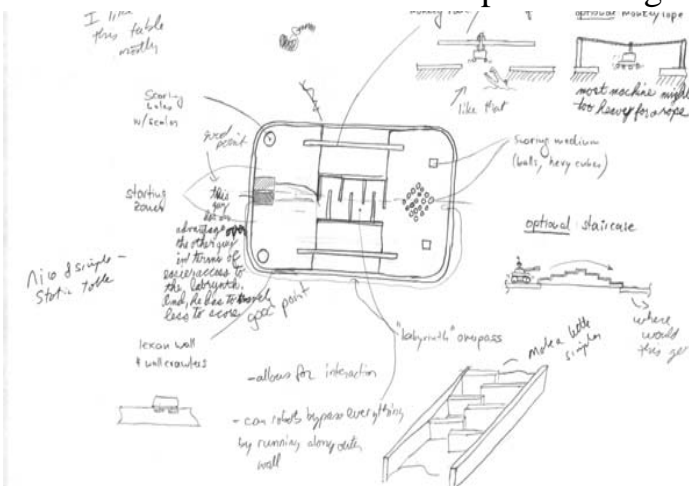 I like
this table
mostly
optional monkey rope
like that
most machine might
too heavy for a rope
Scoring
holes
w/scales
good
point
scoring medium
(balls, hevy cubes)
starting
zones
this
guy
has an
advantage over
the other guy
in terms of
easier access to
the labrynth.
And, he has to travel
less to score
good point
Nice & simple -
Static table
optional: staircase
where
would
this go
lexan wall
& wallcrawlers
"labyrinth" overpass
make a little
simpler
- allows for interaction
- can robots bypass everything
by running along outer
wall